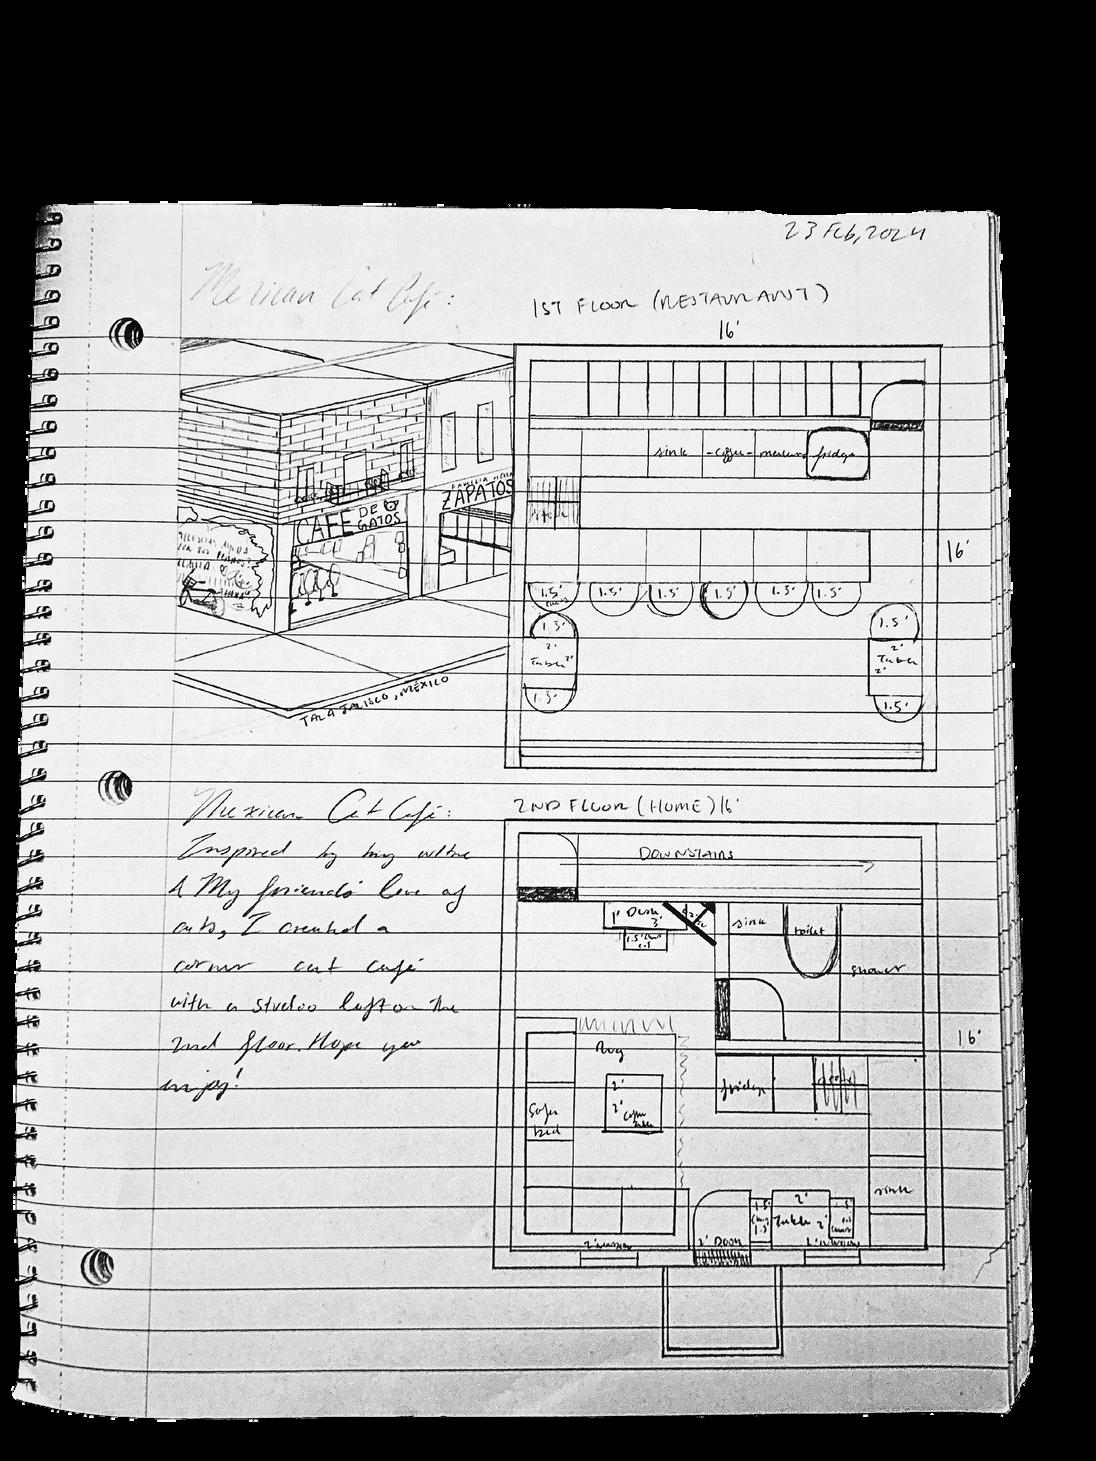 23 Feb, 2024
Mexican Cat Café:
1ST FLOOR (RESTAURANT)
16'
sink coffee fridge
CAFE DE GATOS
ZAPATOS
16'
1.5' 1.5' 1.5' 1.5' 1.5' 1.5'
chair
1.5' 1.5'
2' 2'
Table 2' Table
2'
1.5' 1.5'
TALA JALISCO, MÉXICO
2ND FLOOR (HOME) 16'
DOWNSTAIRS
1' Desk 3'
1.5' chair
1.5
sink toilet
shower
16'
Rug
fridge
2'
2' coffee table
Sofa
bed
sink
2'
Table 2'
1.5' 1.5'
chair chair
1.5'
2' window 2' DOOR 2' window
Mexican Cat Café:
Inspired by my culture
& My friends' love of
cats, I created a
corner cat café
with a studio loft on the
2nd floor. Hope you
enjoy!